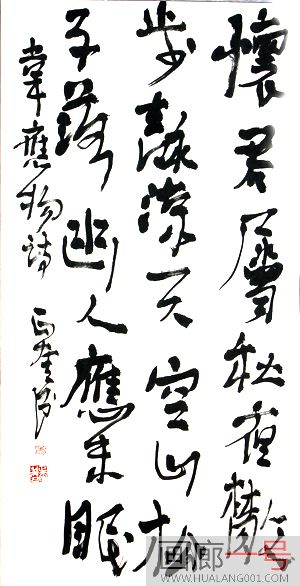 懷君屬秋夜散
步詠涼天空山松
子落幽人應未眠
韋應物詩
画廊一号
WWW.HUALANG001.COM